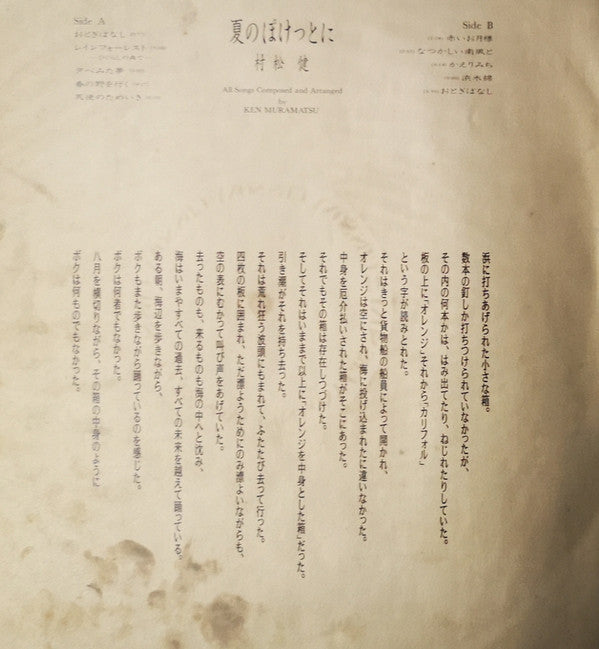 Side A
おとぎばなし
レインフォーレスト
夕べみた夢
春の野を行く
天使のためいき
夏のぽけっとに
村松 健
All Songs Composed and Arranged
by
KEN MURAMATSU
Side B
赤いお月様
なつかしい南風と
かえりみち
浜木綿
おとぎばなし
浜に打ちあげられた小さな箱。
数本の釘しか打ちつけられていなかったが、
その内の何本かは、はみ出てたり、ねじれたりしていた。
板の上に「オレンジ」それから「カリフォル」
という字が読みとれた。
それはきっと貨物船の船員によって開かれ、
オレンジは空にされ、海に投げ込まれたに違いなかった。
中身を厄介払いされた箱がそこにあった。
それでもその箱は存在しつづけた。
そしてそれはいままで以上に「オレンジを中身とした箱」だった。
引き潮がそれを持ち去った。
それは荒れ狂う波頭にもまれて、ふたたび去って行った。
四枚の板に囲まれ、ただ漂ようためにのみ漂よいながらも、
空の表にむかって叫び声をあげていた。
去ったものも、来るものも海の中へと沈み、
海はいまやすべての過去、すべての未来を越えて踊っている。
ある朝、海辺を歩きながら、
ボクもまた歩きながら踊っているのを感じた。
ボクは何者でもなかった。
八月を横切りながら、その箱の中身のように
ボクは何ものでもなかった。